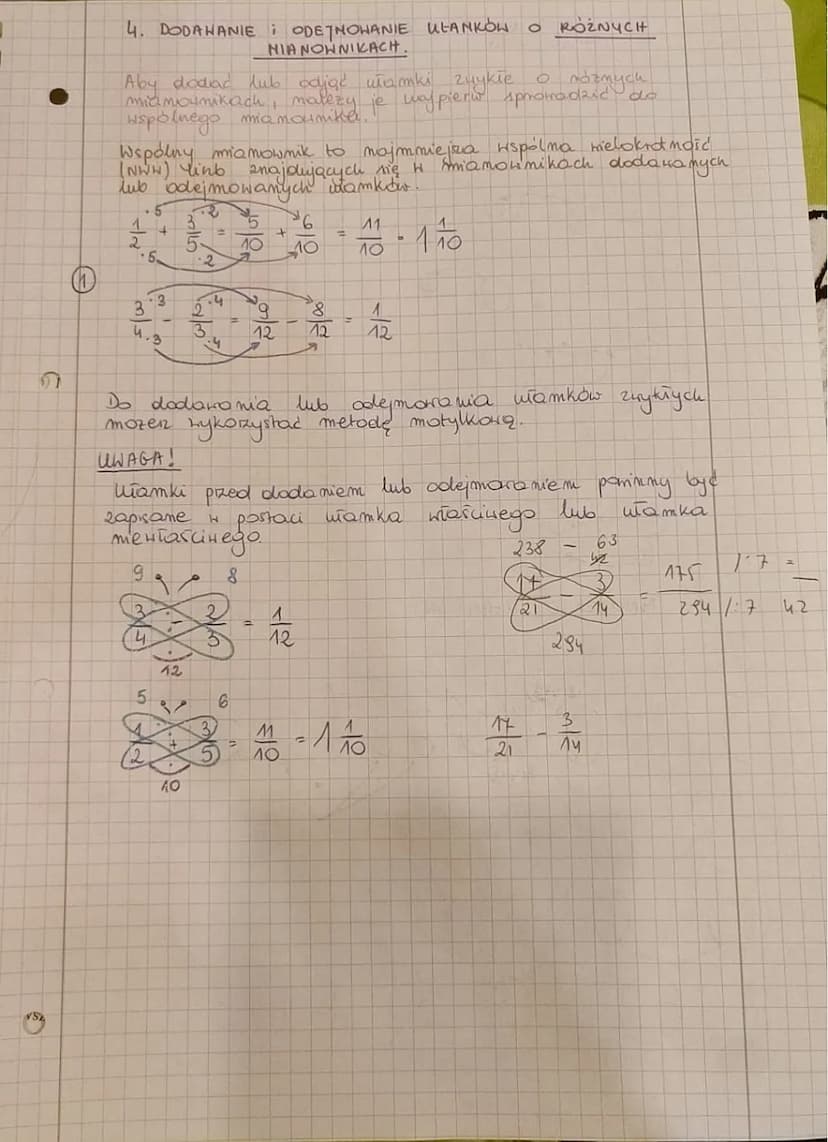 4. DODAWANIE i ODEJMOWANIE UŁAMKÓW O RÓŻNYCH
MIANOWNIKACH.
Aby dodać lub odjąć ułamki zwykłe o różnych
mianownikach, należy je najpierw sprowadzić do
wspólnego mianownika.
Wspólny mianownik to najmniejsza wspólna wielokrotność
(NWW) liczb znajdujących się w mianownikach dodawanych
lub odejmowanych ułamków.
1/2 ·5/·5 + 3/5 ·2/·2 = 5/10 + 6/10 = 11/10 = 1 1/10
1
3/4 ·3/·3 - 2/3 ·4/·4 = 9/12 - 8/12 = 1/12
Do dodawania lub odejmowania ułamków zwykłych
możesz wykorzystać metodę motylkową.
UWAGA!
Ułamki przed dodaniem lub odejmowaniem powinny być
zapisane w postaci ułamka właściwego lub ułamka
niewłaściwego.
9 8
3/4 - 2/3 = 1/12
12
238 - 63
42
17/21 - 3/14 = 175/294 /:7 /:7 = /42
294
5 6
1/2 + 3/5 = 11/10 = 1 1/10
10
17/21 - 3/14